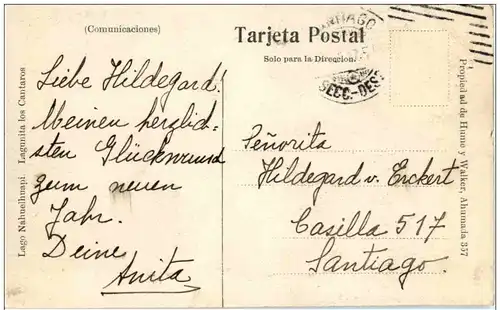 (Comunicaciones)
Liebe Hildegard!
Meinen herzlich-
sten Glückwunsd
zum neuen
Jahr.
Deine
Anita
Lago Nahuelhuapi. Lagunita los Cantaros
Tarjeta Postal
Solo para la Direccion.
SANTIAGO
SECC.-DEST
Señorita
Hildegard v. Erckert
Casilla 517
Santiago.
Propiedad de Hume y Walker, Ahumada 357